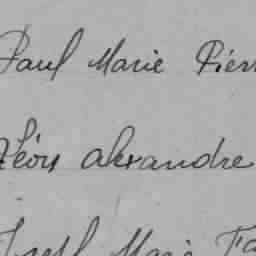 Paul Marie Pierr
Léon alexandre
Joseph Marie Fa